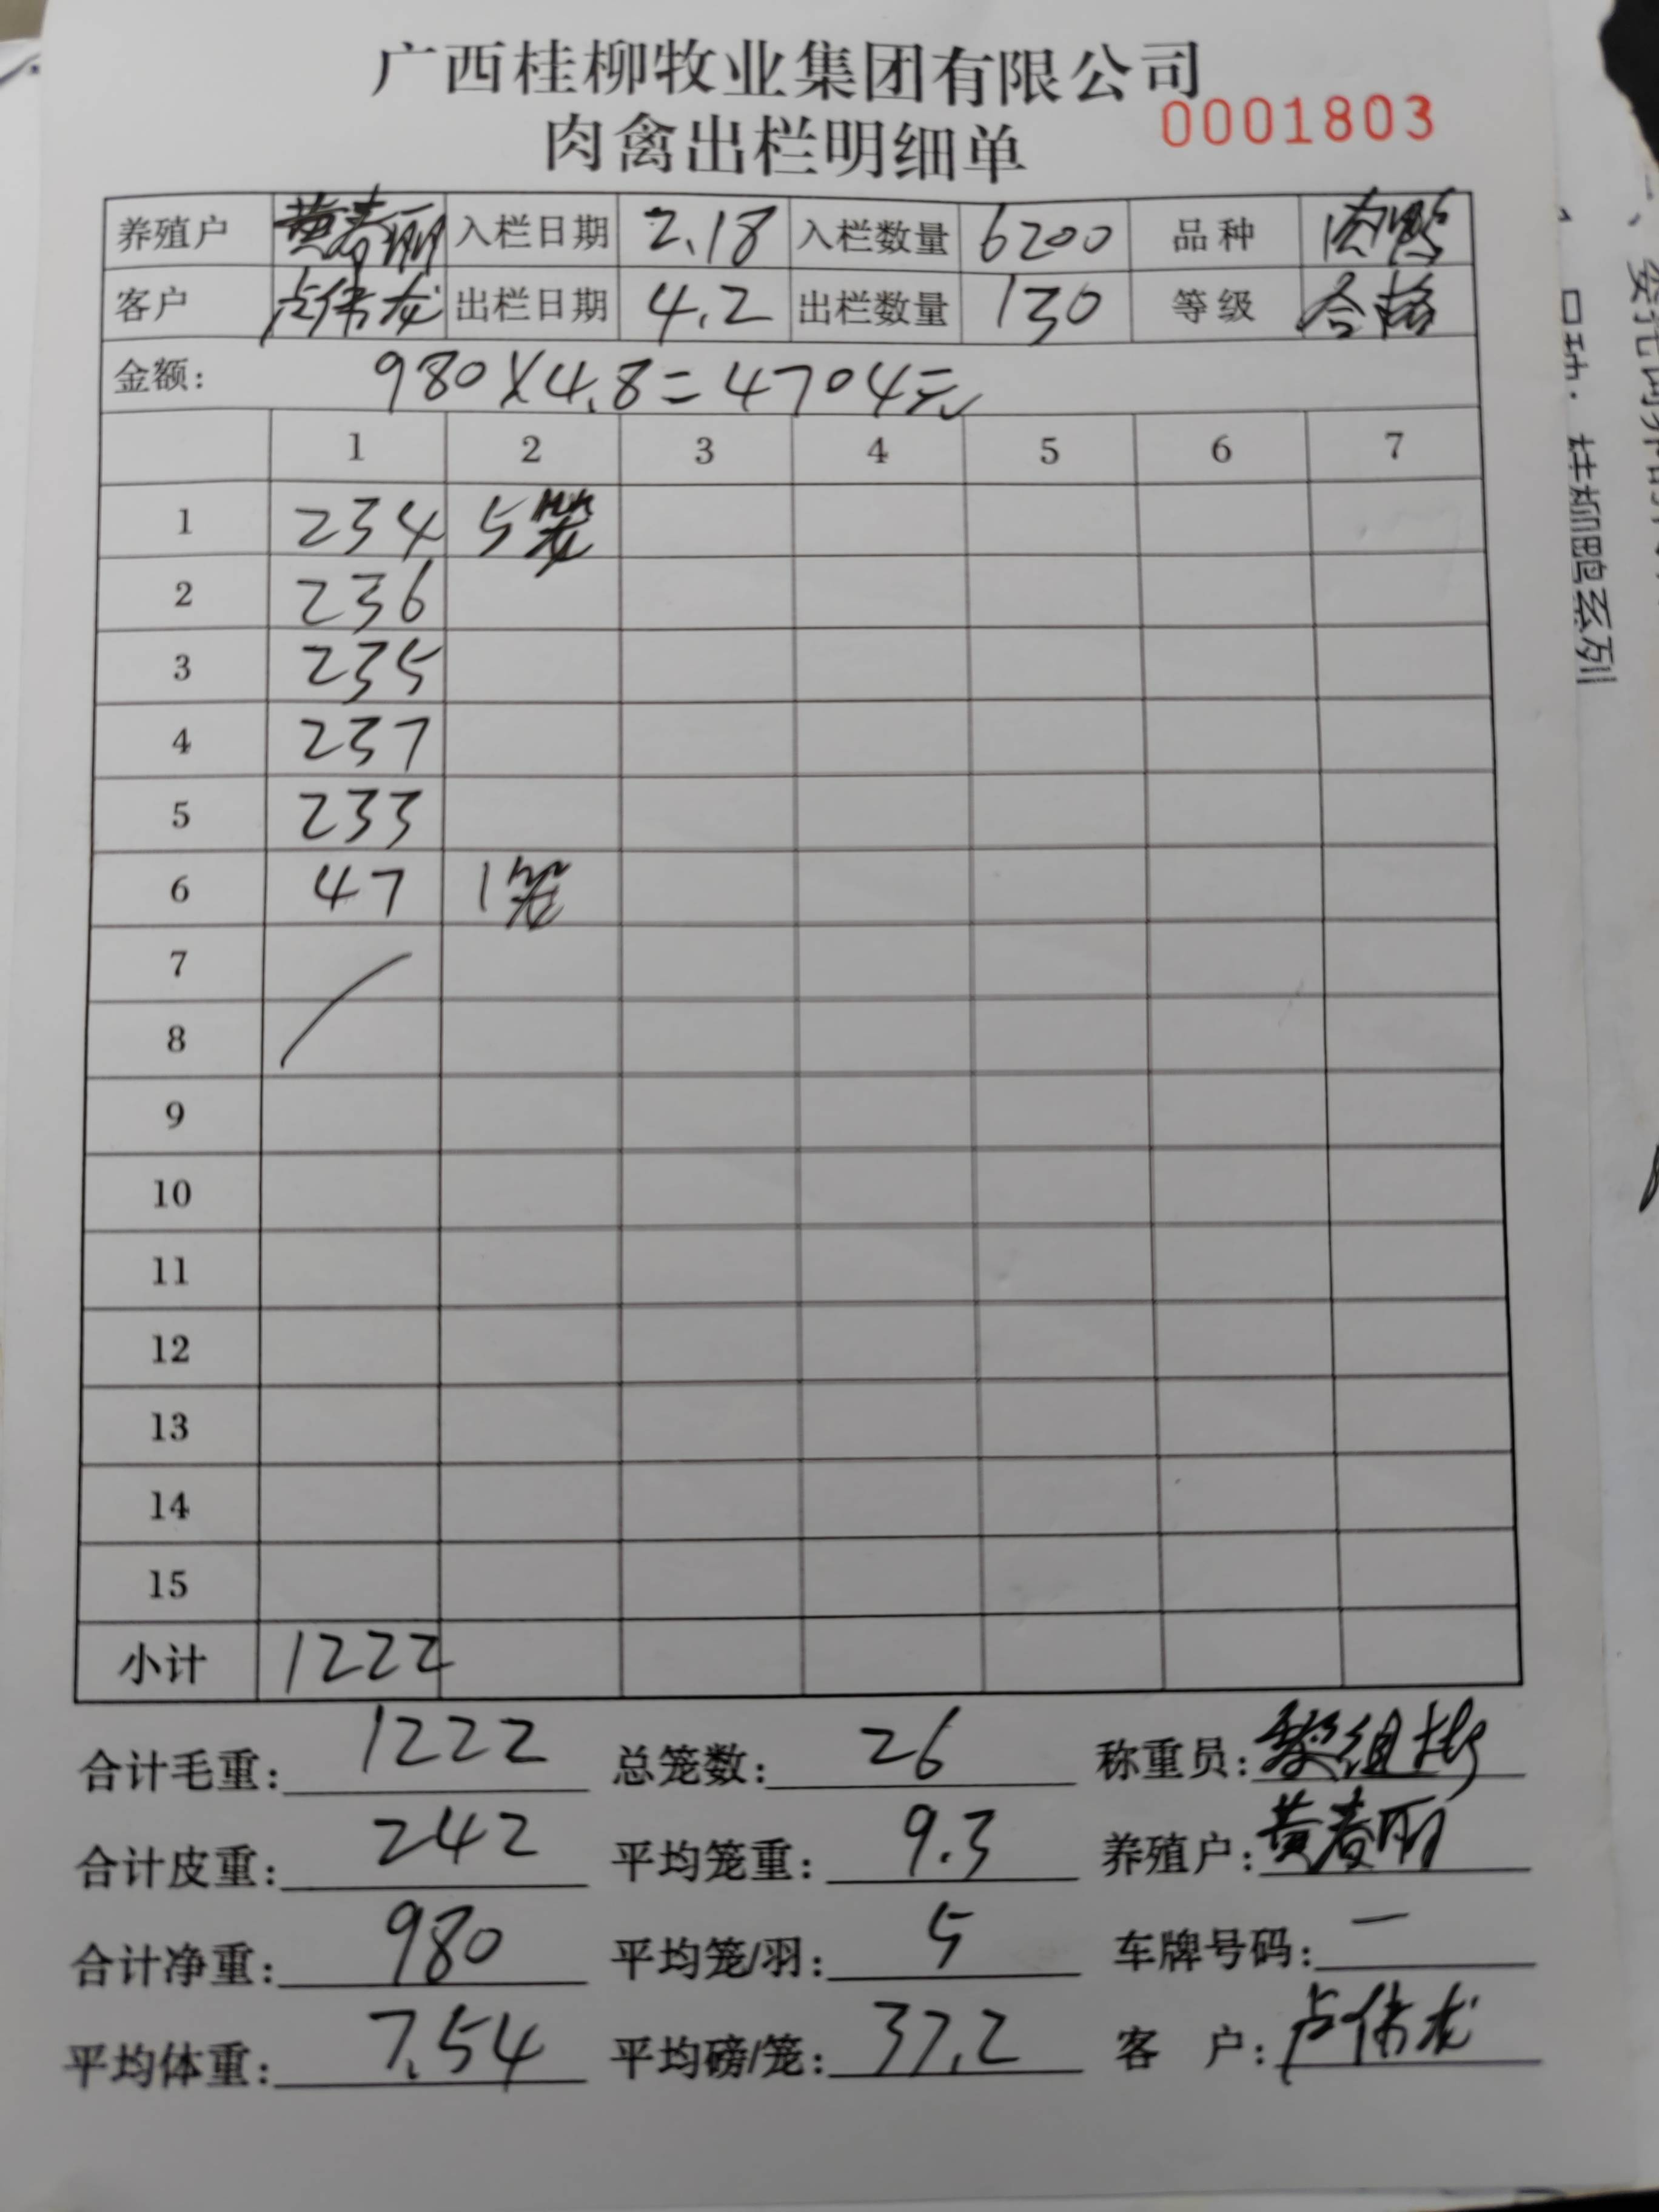 广西桂柳牧业集团有限公司
肉禽出栏明细单 0001803
养殖户 黄春丽 入栏日期 2.18 入栏数量 6200 品种 肉鸭
客户 卢伟龙 出栏日期 4.2 出栏数量 130 等级 合格
金额: 980X4.8=4704元
1 2 3 4 5 6 7
1 234 5笼
2 236
3 235
4 237
5 233
6 47 1笼
7
8
9
10
11
12
13
14
15
小计 1222
合计毛重: 1222 总笼数: 26 称重员:
合计皮重: 242 平均笼重: 9.3 养殖户: 黄春丽
合计净重: 980 平均笼/羽: 5 车牌号码: 一
平均体重: 7.54 平均磅/笼: 37.2 客 户: 卢伟龙
品种:桂柳鸭系列